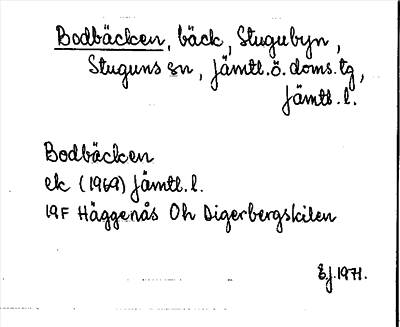 Bodbäcken, bäck, Stugubyn,
Stuguns sn, Jämtl.ö.doms.tg,
Jämtl.l.
Bodbäcken
ek (1969) Jämtl.l.
19F Häggenås Öh Digerbergskilen
E.J.1971.